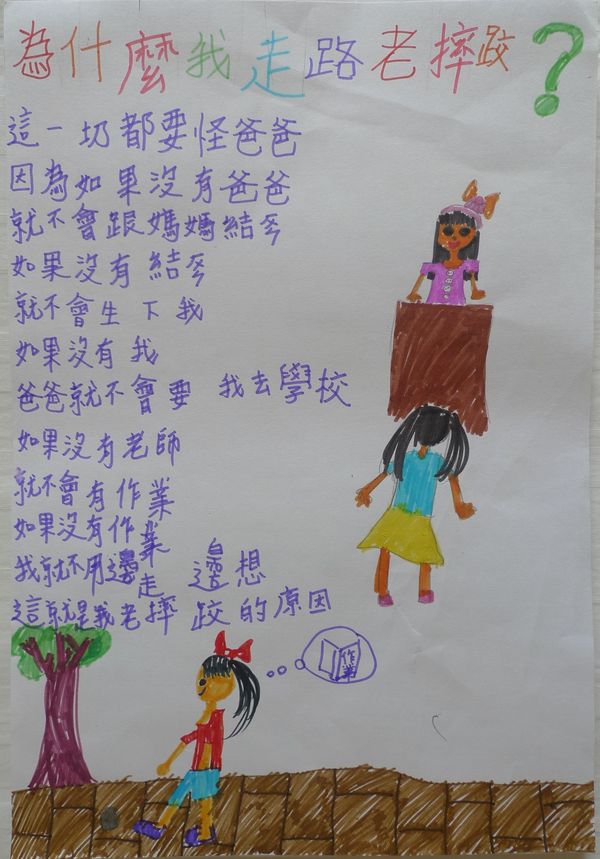 為什麼我走路老摔跤?
這一切都要怪爸爸
因為如果沒有爸爸
就不會跟媽媽結婚
如果沒有結婚
就不會生下我
如果沒有我
爸爸就不會要我去學校
如果沒有老師
就不會有作業
如果沒有作業
我就不用邊走邊想
這就是我老摔跤的原因
作業